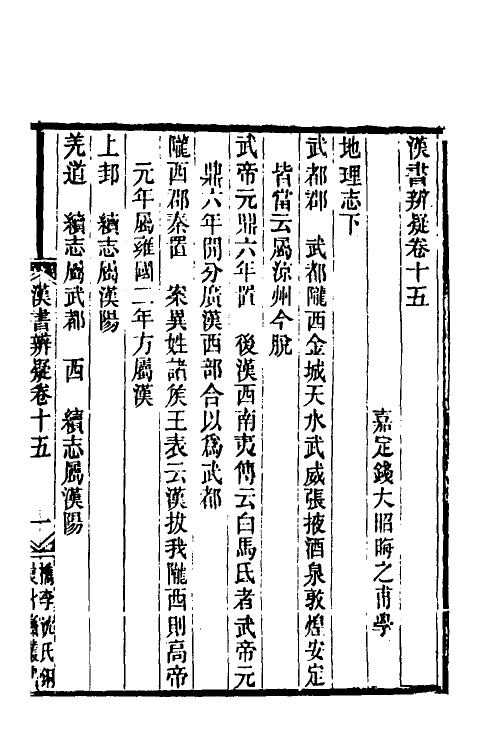 漢書辨疑卷十五
嘉定錢大昭晦之甫學
地理志下
武都郡　武都隴西金城天水武威張掖酒泉敦煌安定
皆當云屬涼州今脫
武帝元鼎六年置　後漢西南夷傳云白馬氐者武帝元
鼎六年開分廣漢西部合以爲武都
隴西郡秦置　案異姓諸矦王表云漢拔我隴西則高帝
元年屬雍國二年方屬漢
上邽　續志屬漢陽
羌道　續志屬武都　西　續志屬漢陽
漢書辨疑卷十五　一
檇李沈氏銅